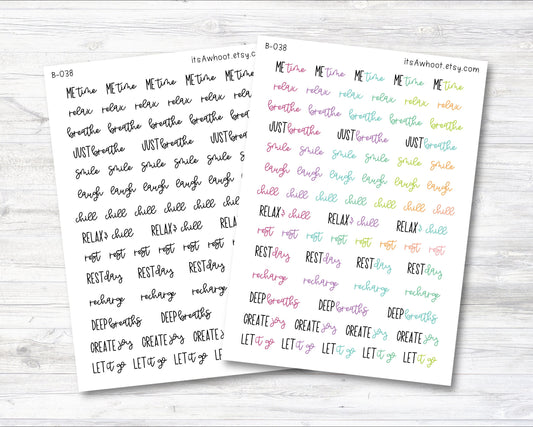 B-038 itsAwhoot.etsy.com
ME time ME time ME time ME time ME time
relax relax relax relax relax
breathe breathe breathe breathe breathe
JUST breathe JUST breathe JUST
smile smile smile smile smile
laugh laugh laugh laugh laugh
chill chill chill chill chill
RELAX & chill RELAX & chill
rest rest rest rest rest rest
REST day REST day REST day
recharge recharge
DEEP breaths DEEP breaths
CREATE joy CREATE joy CREATE joy
LET it go LET it go LET it go LET it go
B-038 itsAwhoot.etsy.com
ME time ME time ME time ME time ME time
relax relax relax relax relax
breathe breathe breathe breathe breathe
JUST breathe JUST breathe JUST breathe
smile smile smile smile smile smile
laugh laugh laugh laugh laugh laugh
chill chill chill chill chill chill chill
RELAX & chill RELAX & chill RELAX & chill
rest rest rest rest rest rest rest
REST day REST day REST day REST day
recharge recharge recharge recharge
DEEP breaths DEEP breaths DEEP breaths
CREATE joy CREATE joy CREATE joy CREATE joy
LET it go LET it go LET it go LET it go LET it go